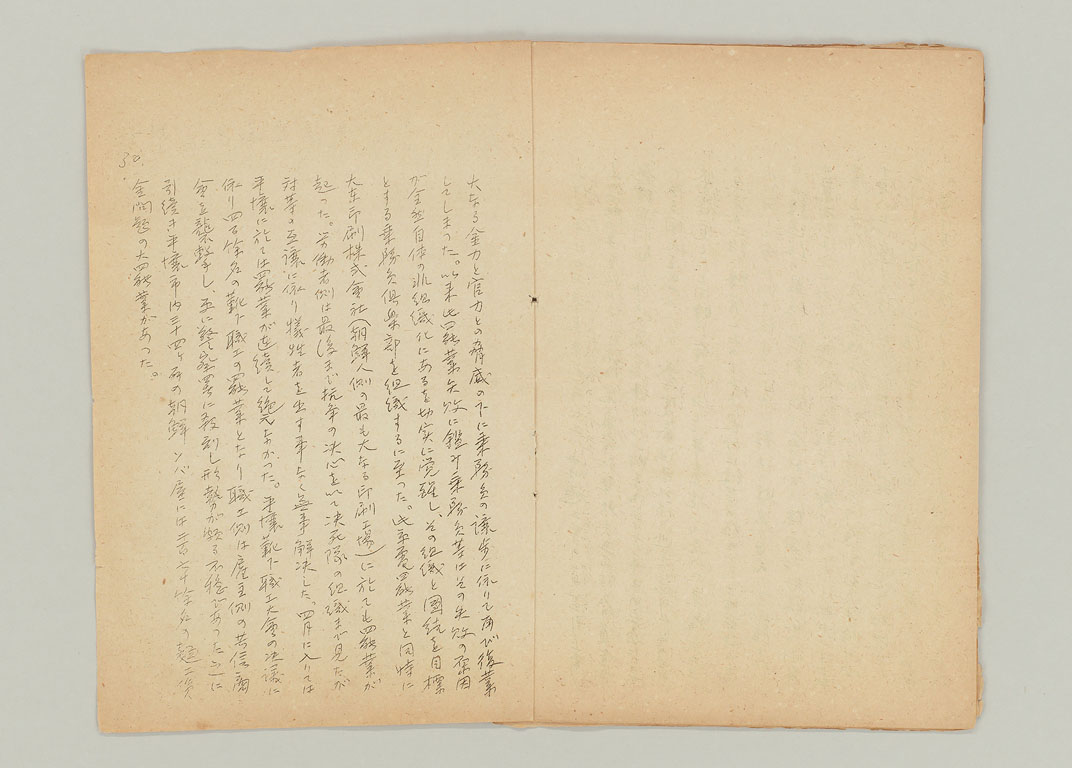 大なる金力と官力との脅威の下に乗務員の譲歩に依りて再び復業
してしまつた。以来此罷業失敗に鑑み乗務員等はその失敗の原因
が全然自体の非組織化にあるを切実に覚醒し、その組織と團結を目標
とする乗務員倶楽部を組織するに至つた。此電車罷業と同時に
大東印刷株式会社(朝鮮人側の最も大なる印刷工場)に於ても罷業が
起つた。労働者側は最後まで抗争の決心を以て決死隊の組織まで見たが
対等の互譲に依り犠牲者を出す事なく無事解決した。四月に入りては
平壌に於ては罷業が連続して絶えなかつた。平壌靴下職工大会の決議に
依り四百余名の靴下職工の罷業となり職工側は雇主側の共信商
会を襲撃し、更に警察署に殺到し形勢が頗る不穏であつた。更に
引続き平壌市内三十四ヶ所の朝鮮ソバ屋には二百七十余名の麺工賃
金問題の大罷業があつた。
30.